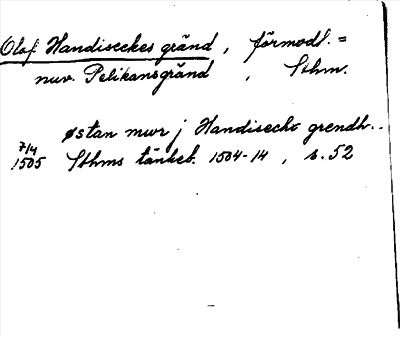 Olaf Handiseckes gränd, förmodl. =
nuv. Pelikansgränd, Sthm.
østan mwr j Handisecks grendh..
7/4 1505 Sthms tänkeb. 1504-14, s. 52